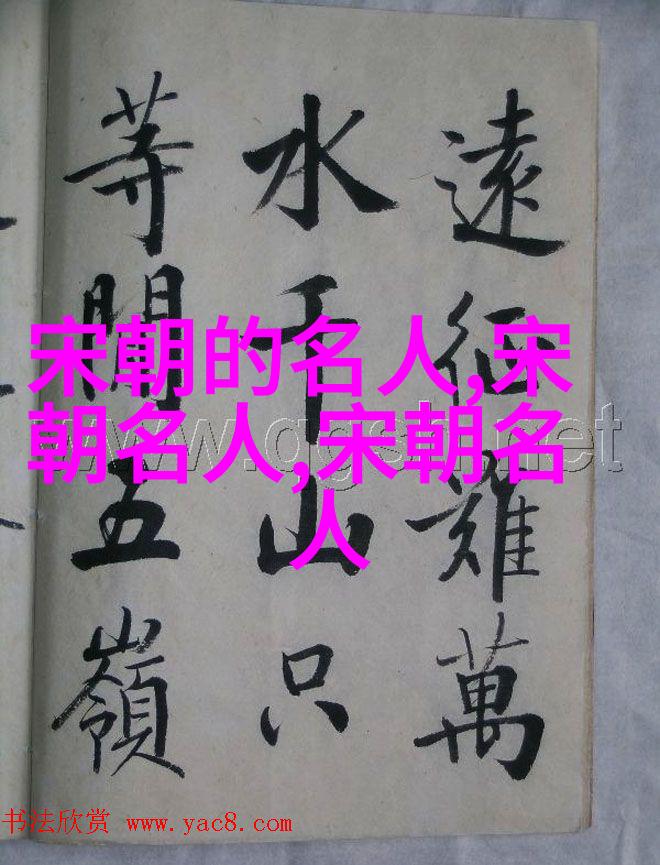 遠征難萬
水千山只
等閒五嶺
宋朝的名人,宋
朝名人,宋朝名
人
书法欣赏 www.yac8.com